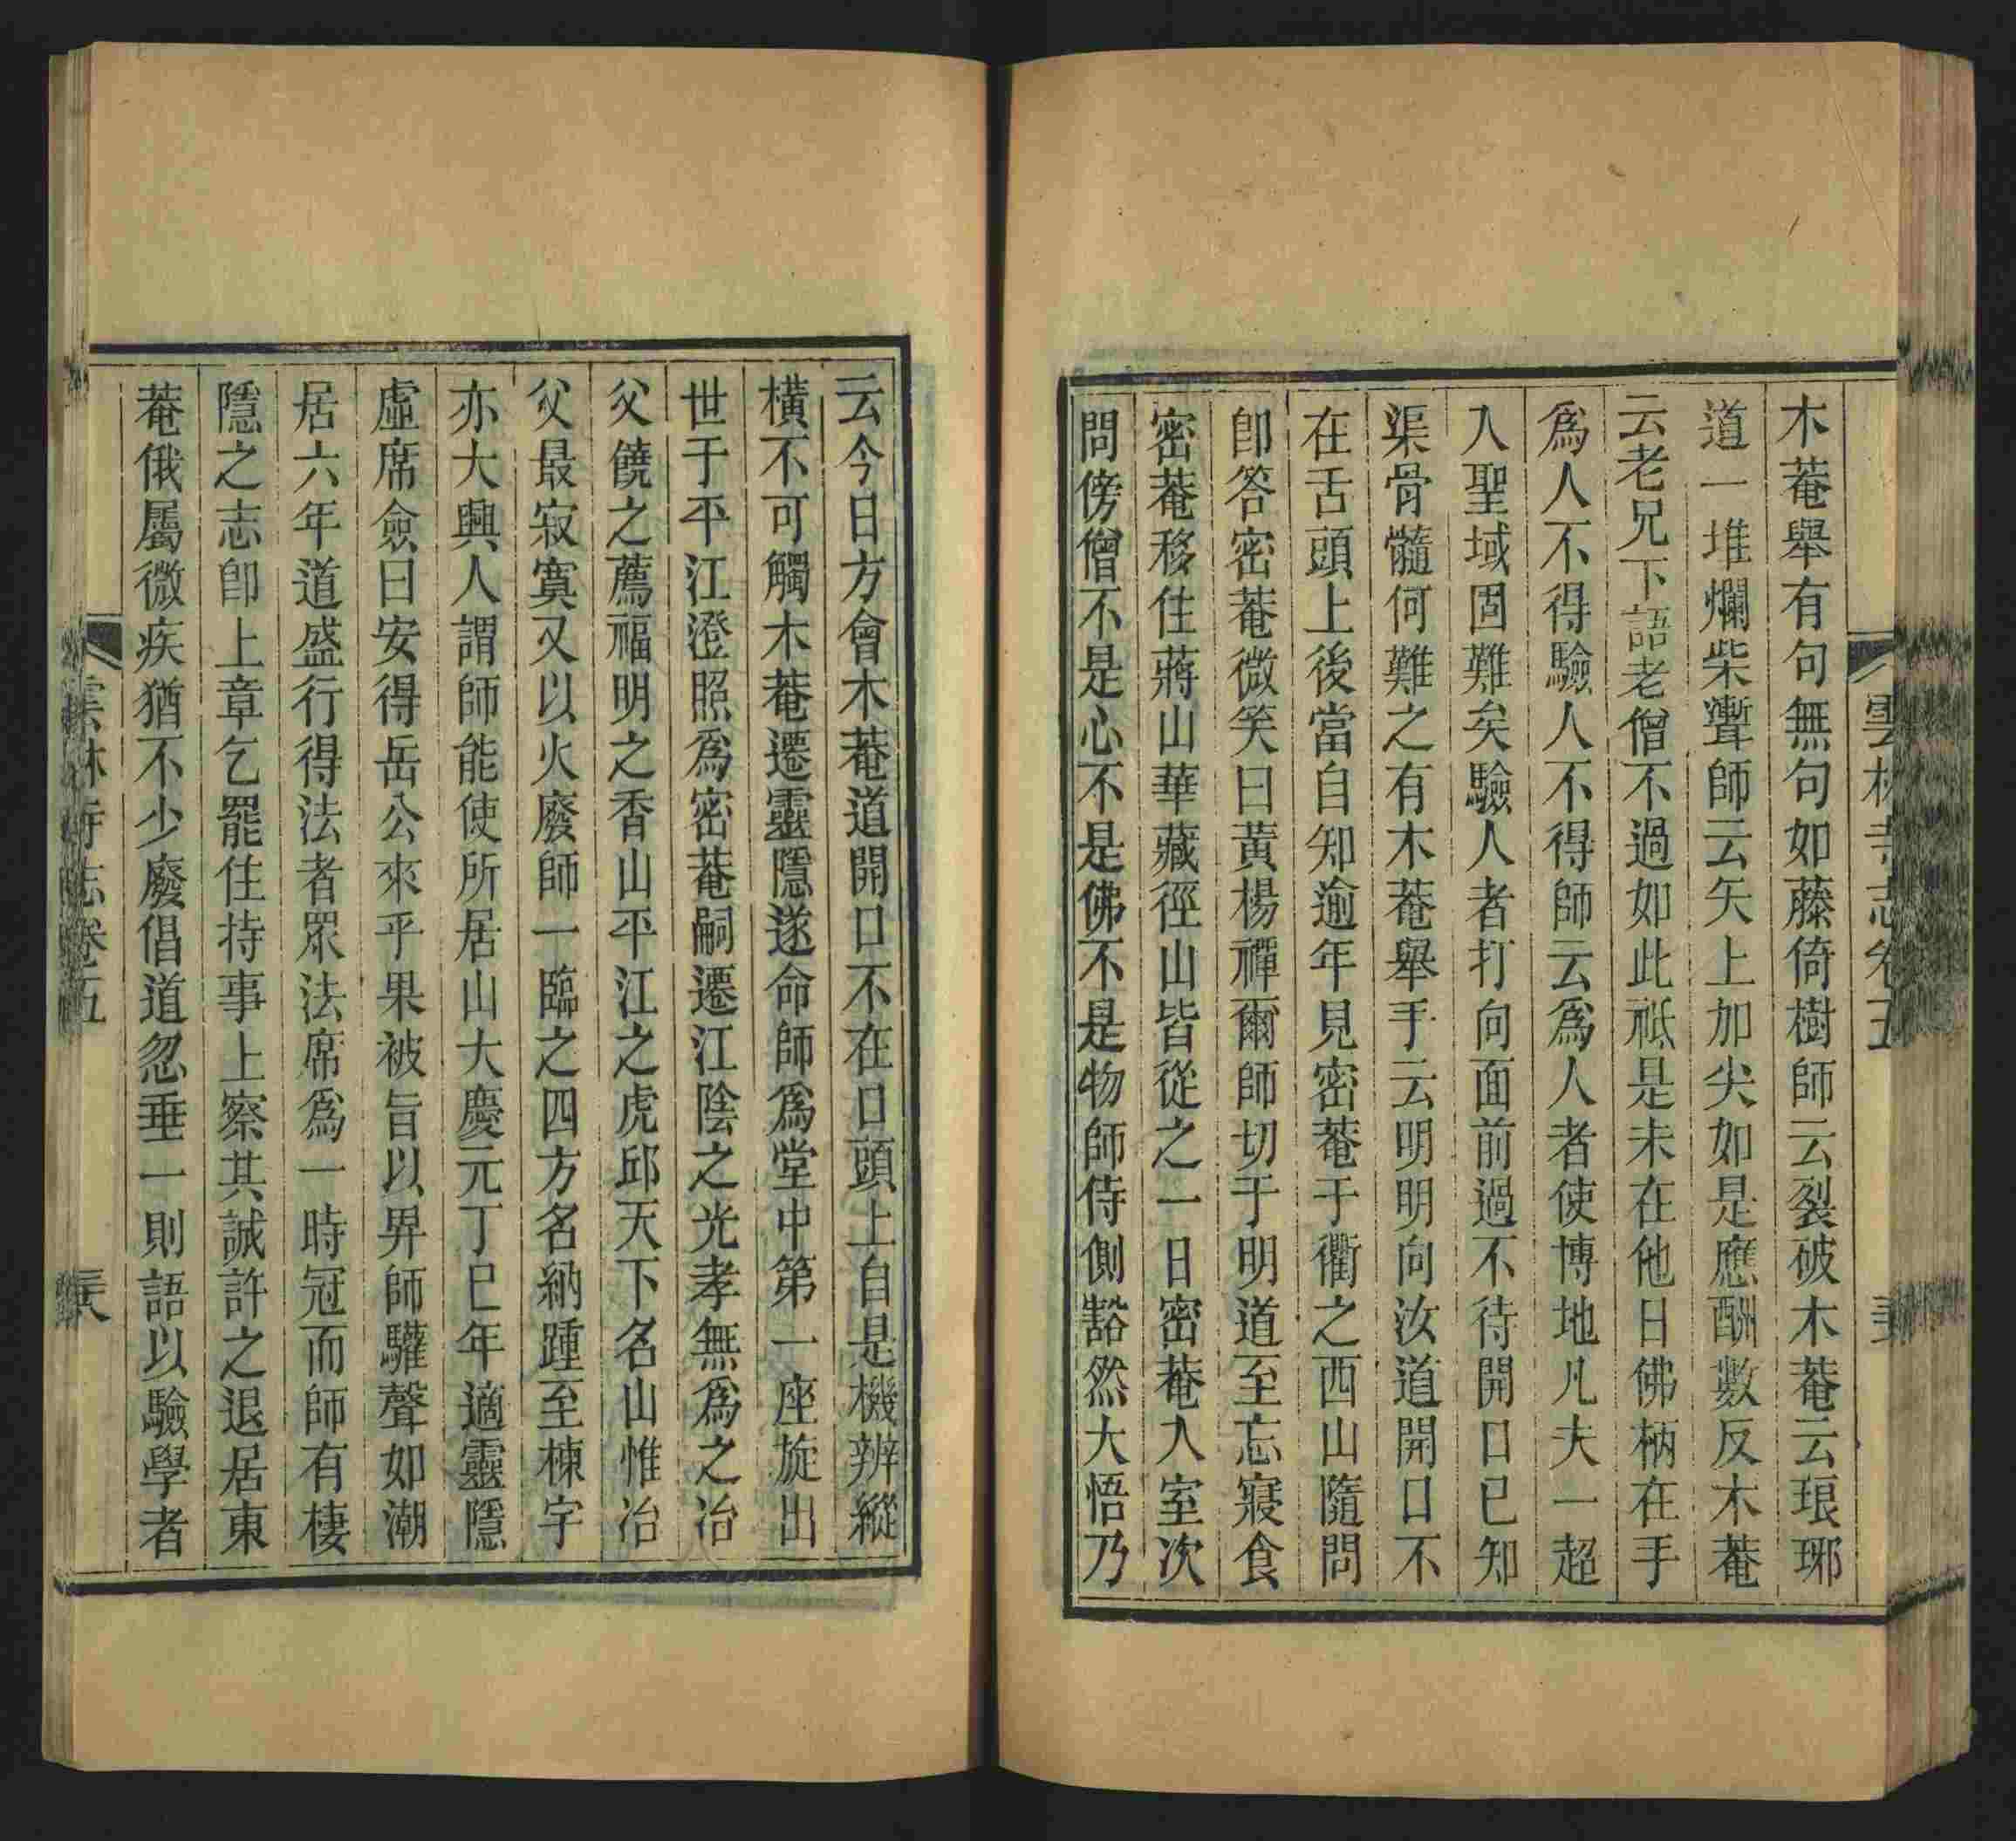 木菴舉有句無句如藤倚樹師云裂破木菴云琅琊
道一堆爛柴聻師云矢上加尖如是應酬數反木菴
云老兄下語老僧不過如此祗是未在他日佛柄在手
爲人不得驗人不得師云爲人者使博地凡夫一超
入聖域固難矣驗人者打向面前過不待開口已知
渠骨髓何難之有木菴舉手云明明向汝道開口不
在舌頭上後當自知逾年見密菴于衢之西山隨問
卽答密菴微笑曰黃楊禪爾師切于明道至忘寢食
密菴移住蔣山華藏徑山皆從之一日密菴入室次
問傍僧不是心不是佛不是物師侍側豁然大悟乃
雲林寺志卷五
云今日方會木菴道開口不在口頭上自是機辨縱
橫不可觸木菴遷靈隱遂命師爲堂中第一座旋出
世于平江澄照爲密菴嗣遷江陰之光孝無爲之冶
父饒之薦福明之香山平江之虎邱天下名山惟冶
父最寂寞又以火廢師一臨之四方名納踵至棟宇
亦大興人謂師能使所居山大慶元丁巳年適靈隱
虛席僉曰安得岳公來乎果被旨以畀師驩聲如潮
居六年道盛行得法者眾法席爲一時冠而師有棲
隱之志卽上章乞罷住持事上察其誠許之退居東
菴俄屬微疾猶不少廢倡道忽垂一則語以驗學者
雲林寺志卷五